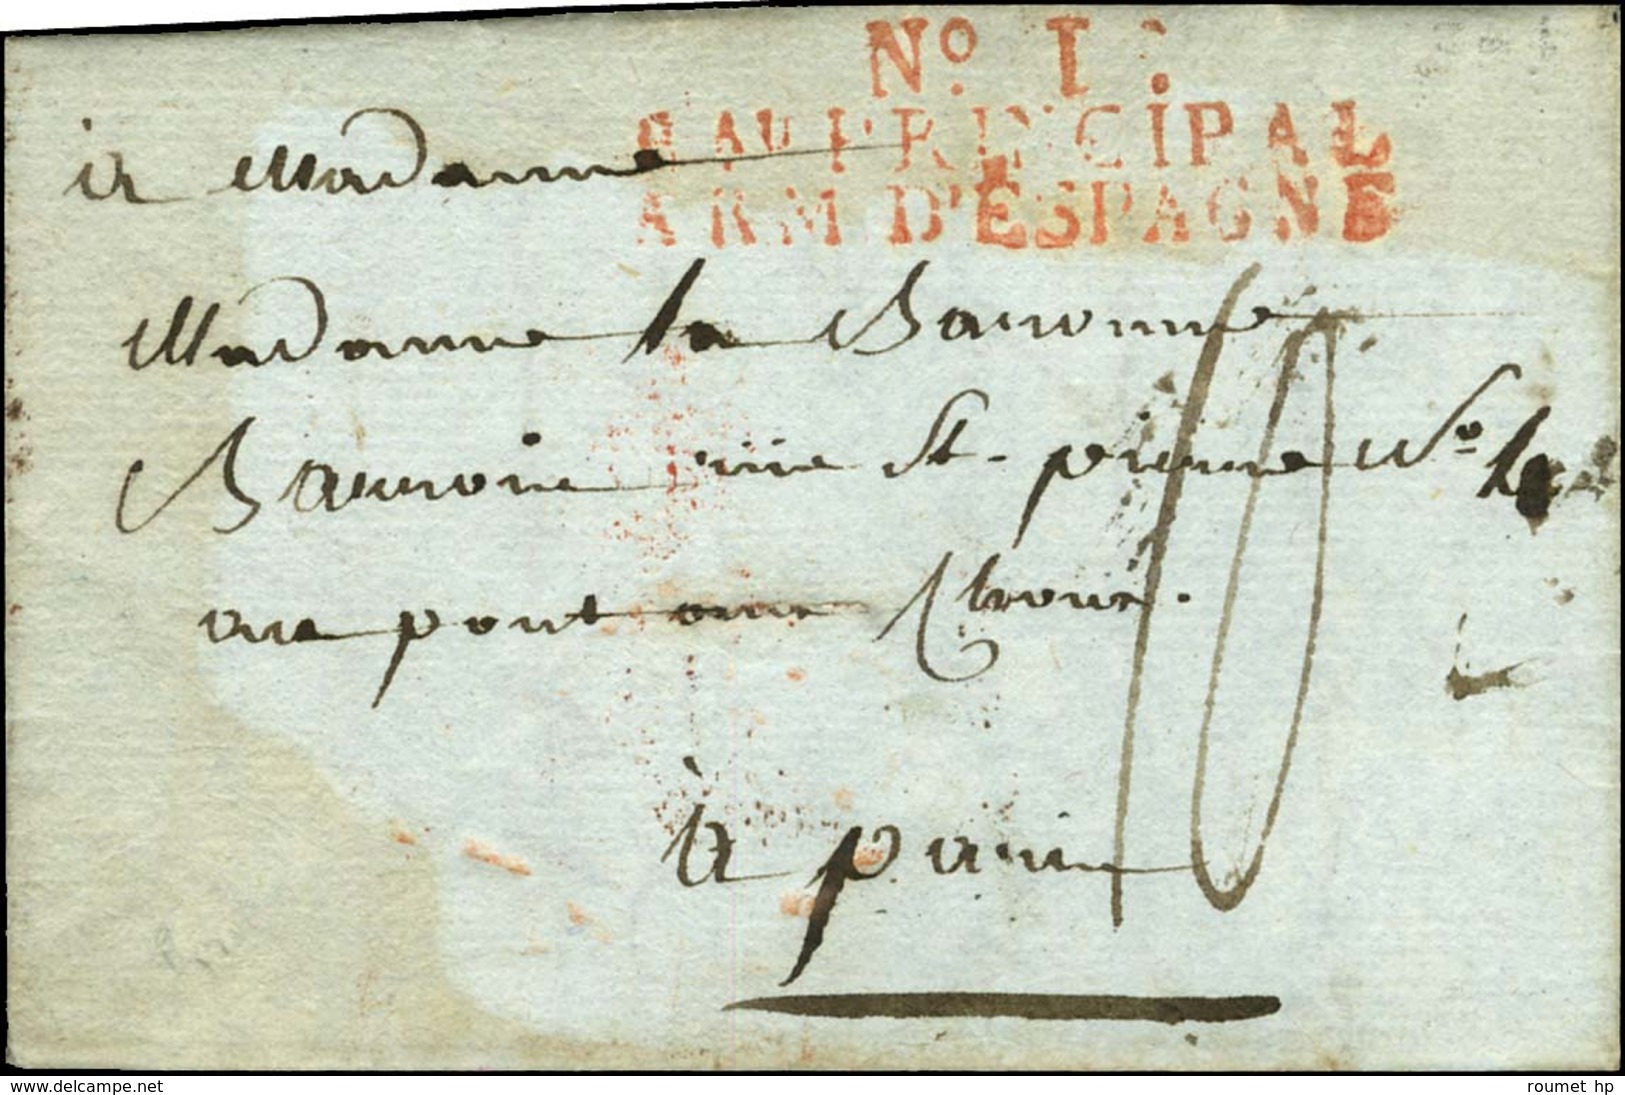 No. 1.
BAU PRINCIPAL
ARM D'ESPAGNE
a Madame
Madame la Baronne
rue St. pierre No. 4
au pont aux Choux.
10
à paris
www.delcampe.net
roumet hp